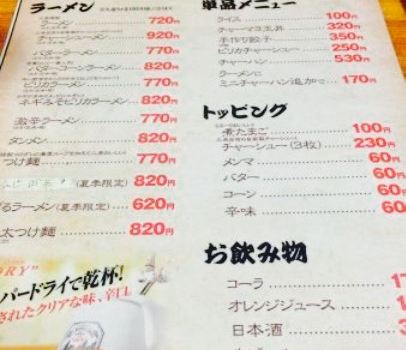 ラーメン
ラーメン 720円
チャーシューメン 920円
バターラーメン 770円
バターコーンラーメン 820円
ピリカラーメン 770円
ネギみそピリカラーメン 820円
激辛ラーメン 770円
タンメン 820円
つけ麺 770円
(夏季限定) 820円
るラーメン(夏季限定) 620円
太つけ麺 820円
DRY"
パードライで乾杯!
されたクリアな味、辛口
単品メニュー
ライス 100円
チャーマヨ玉丼 320円
手作り餃子 350円
ピリカチャーシュー 250円
チャーハン 530円
ラーメンに
ミニチャーハン追加で… 170円
トッピング
煮たまご 100円
チャーシュー(3枚) 230円
メンマ 60円
バター 60円
コーン 60円
辛味 60円
お飲み物
コーラ
オレンジジュース
日本酒